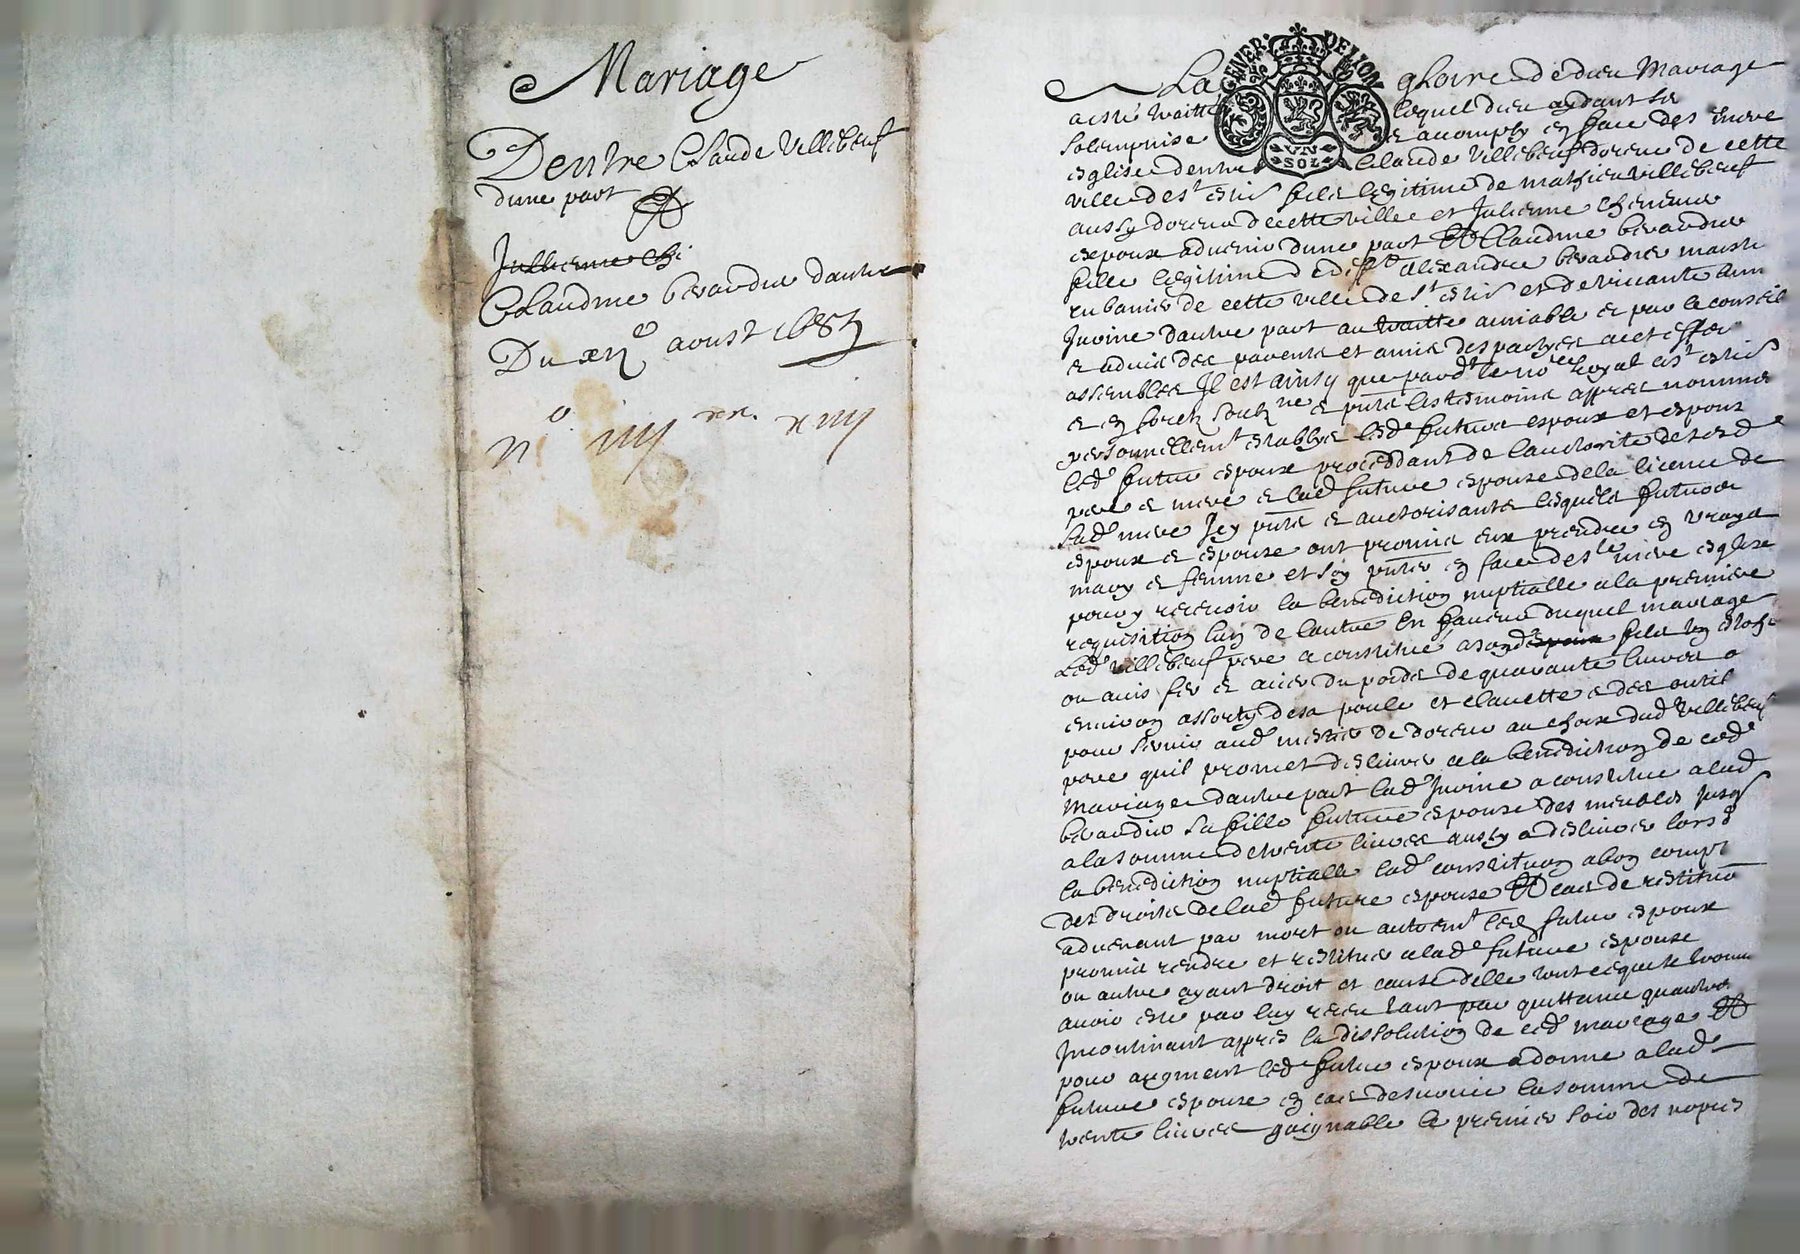 Mariage
Dentre Claude Villebeuf
dune part Et
Jullienne Ch
Claudine beraudier dautre
Du aoust 1685
n° iiij xx xiiij
GENER. DE LION
UN SOL
A La gloire de dieu Mariage
a este traitté lequel dieu aydant se
solempnise et acomply en face des mere
eglise dentre Claude Villebeuf doreur de cette
ville de st estie fils legitime de mathieu Villebeuf
aussy doreur de cette ville et Julienne
espoux advenir dune part Et Claudine beraudier
fille legitime a defft alexandre beraudier maistre
rubanier de cette ville de st estie et de
Juvine dautre part au traitte amiable et par le conseil
et advis des parents et amis des partyes a cet effet
assembles Il est ainsy que pardt le nore Royal a st estie
et en forest soubz ne et pnts les temoins appres nommes
personnellemt establys lesd futurs espoux et espouze
led futur espoux proceddant de lauthorite de sesd
pere et mere et lad future espouse de la licence de
sad mere Icy pnte et auctorisante lesquels futurs
espoux et espouze ont promis eux prendre en vrays
mary et femme et soy pnter en face de ste mere eglise
pour y recevoir la benediction nuptialle a la premiere
requisition lun de lautre En faveur duquel mariage
Led Villebeuf pere a constitué a sond espoux fils un
ou fer et acier du poids de quarante livres
environ assorty de sa poule et clavette et des outil
pour servir aud mestier de doreur au choix dud Villebeuf
pere quil promet deslivrer a la benediction de ced
mariage dautre part lad Juvine a constitue a lad
beraudier sa fille future espouse des meubles jusqs
a la somme de trente livres aussy a deslivrer lors d
la benediction nuptialle lad constitution a bon compt
des droits de lad future espouse Et cas de restituon
advenant par mort ou autremt led futur espoux
promis rendre et restituer a lad future espouse
ou autre ayant droit et cause delle tout ce que se trouvera
avoir este par luy receu tant par quittance quautre
Incontinant appres la dissolution de ced mariage Et
pour augment led futur espoux a donne a lad
future espouse en cas de survie la somme de
trente livres gaignable le premier soir des nopces